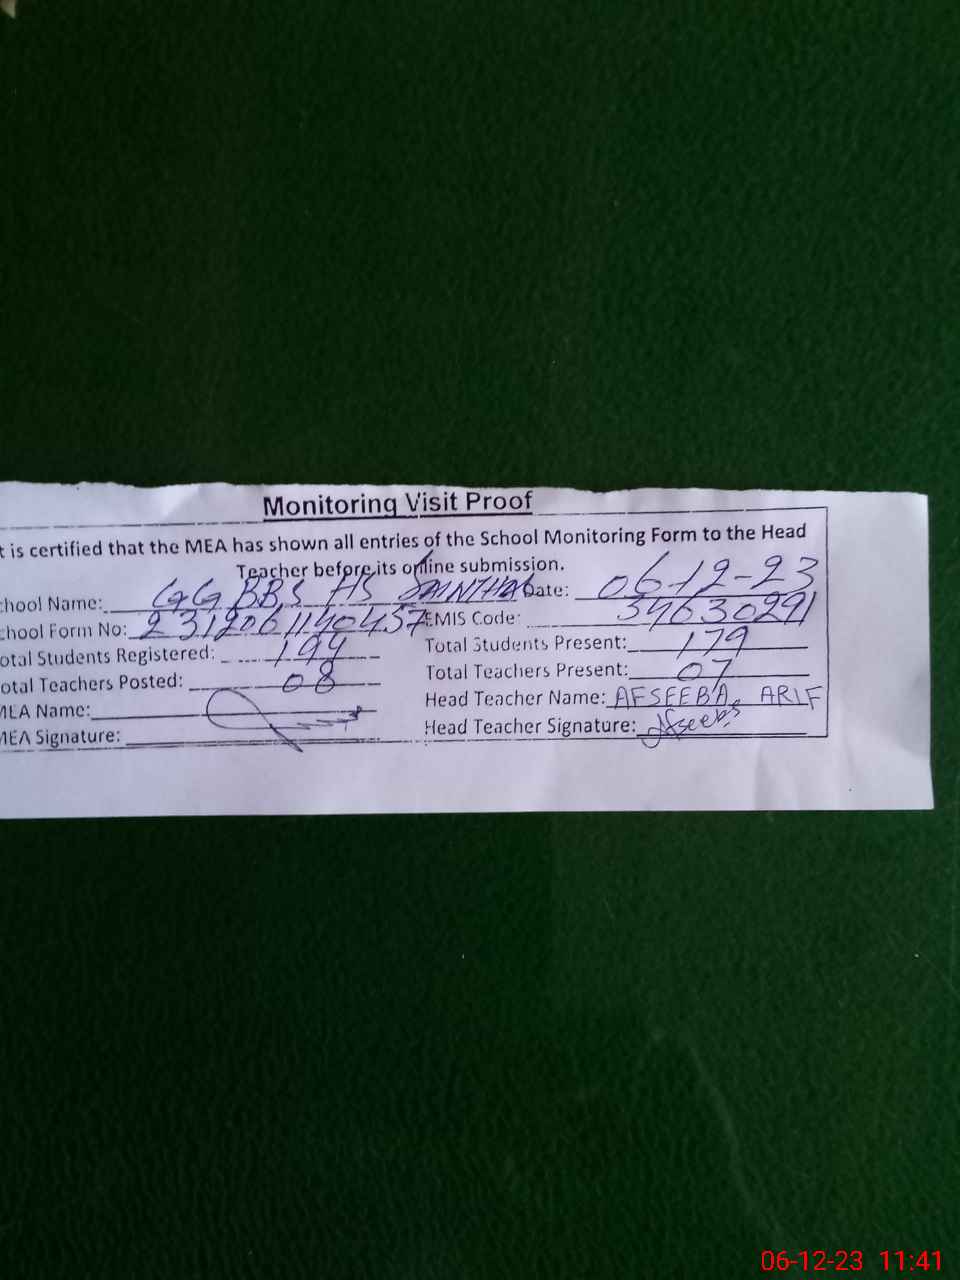 Monitoring Visit Proof
t is certified that the MEA has shown all entries of the School Monitoring Form to the Head
Teacher before its online submission.
chool Name: GG BBS HS Date: 06-12-23
chool Form No: 2312061140457 EMIS Code: 34630291
otal Students Registered: 194 Total Students Present: 179
otal Teachers Posted: 08 Total Teachers Present: 07
MEA Name: Head Teacher Name: AFSEEBA ARIF
MEA Signature: Head Teacher Signature: Afseeba
06-12-23 11:41